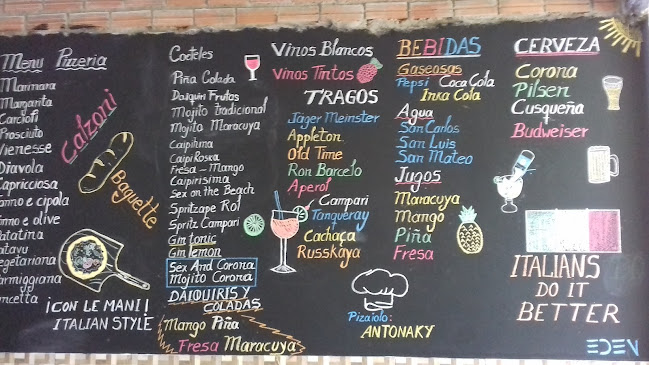 Menu Pizzeria
Marinara
Margarita
Carciofi
Prosciuto
Viennese
Diavola
Capricciosa
e cipola
e olive
Calzoni
Baguette
¡CON LE MANI!
ITALIAN STYLE
Cocteles
Piña Colada
Daiquiri Frutas
Mojito Tradicional
Mojito Maracuya
Caipitima
CaipiRoska
Fresa - Mango
Caipirisima
Sex on the Beach
Spritzape Rol
Spritz Campari
Gin tonic
Gin lemon
Sex And Corona
Mojito Corona
DAIQUIRIS Y
COLADAS
Mango Piña
Fresa Maracuya
Vinos Blancos
Vinos Tintos
TRAGOS
Jäger Meinster
Appleton
Old Time
Ron Barcelo
Aperol
Campari
Tanqueray
Cachaça
Russkaya
Pizaiolo:
ANTONAKY
BEBIDAS
Gaseosas
Pepsi Coca Cola
Inka Cola
Agua
San Carlos
San Luis
San Mateo
Jugos
Maracuya
Mango
Piña
Fresa
CERVEZA
Corona
Pilsen
Cusqueña
Budweiser
ITALIANS
DO IT
BETTER
EDEN